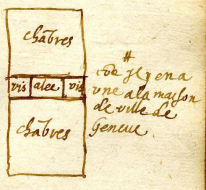 chãbres
vis alee vis
chãbres
#
cõe jl y en a
vne a la maison
de ville de
Geneue